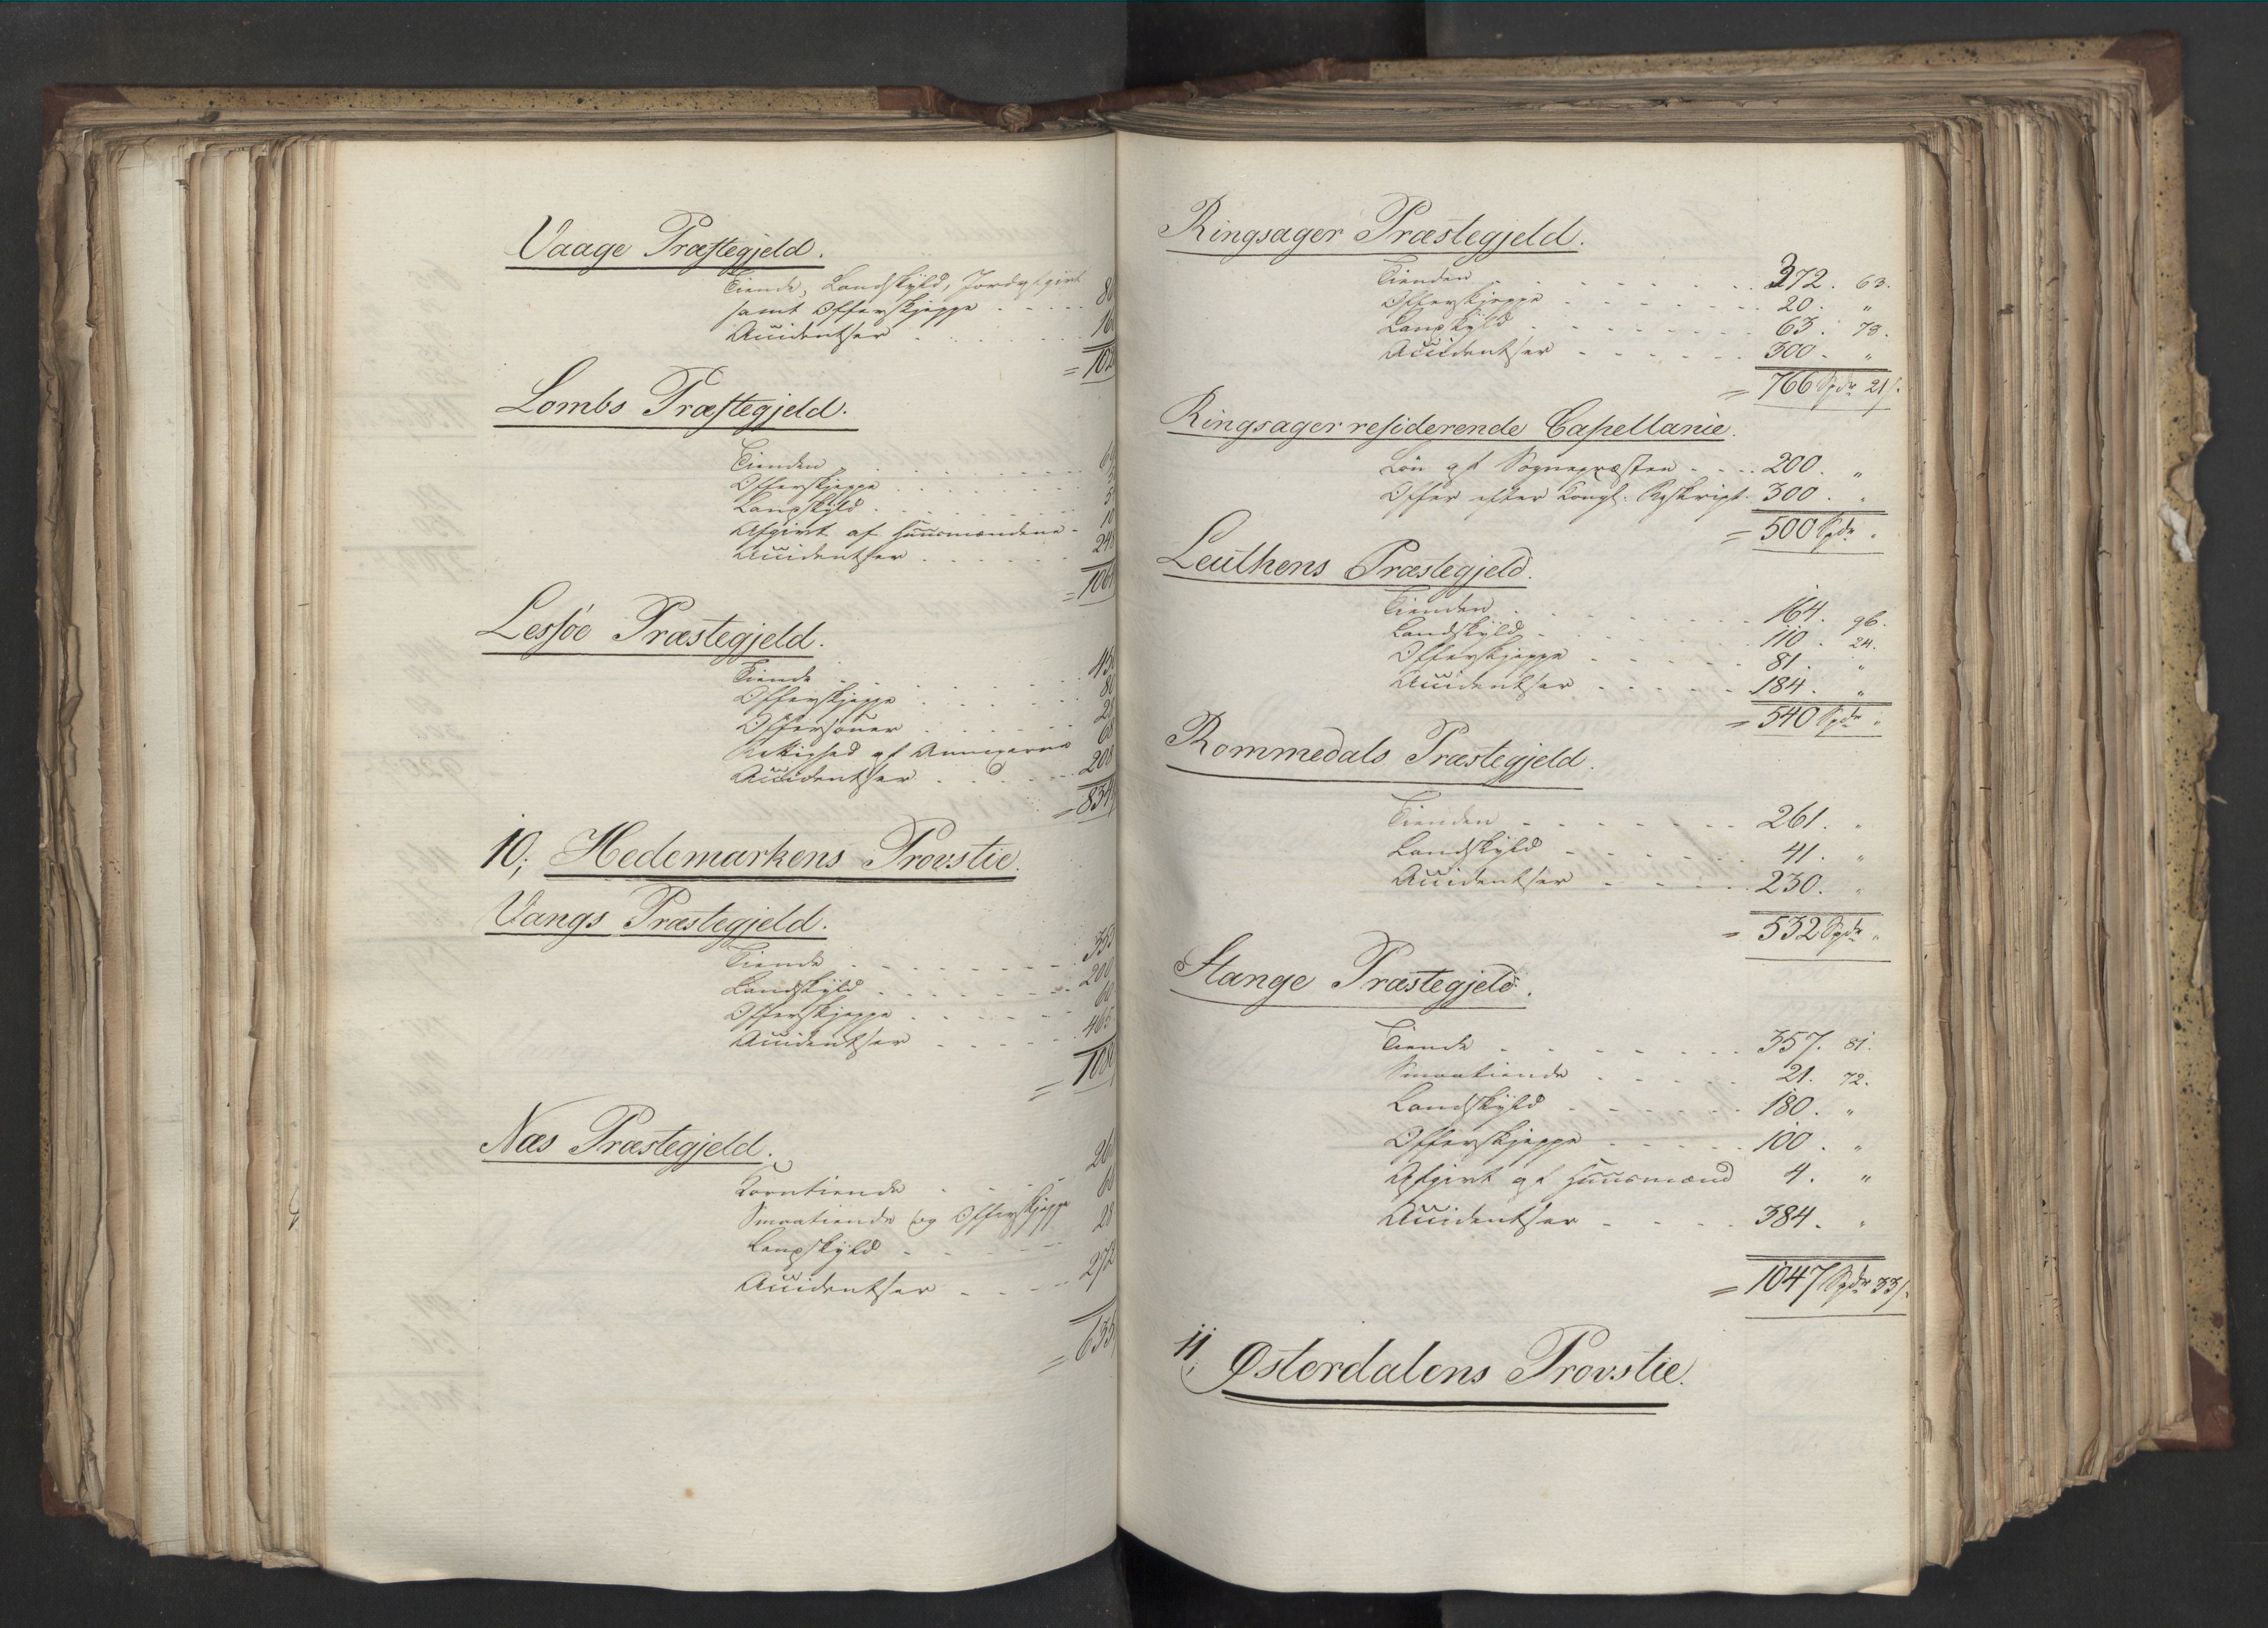 Vaage Præstegjeld.
Tiende, Landskyld, Jordafgivt
samt Offerskjeppe
Accidentser
= 102
Lombs Præstegjeld.
Tienden
Offerskjeppe
Landskyld
Afgivt af Huusmændene
Accidentser 248
= 106
Lessøe Præstegjeld.
Tiende 45
Offerskjeppe 80
Offersouer 28
Rettighed af Annexerne 68
Accidentser 208
= 834
10, Hedemarkens Provstie.
Vangs Præstegjeld.
Tiende 35
Landskyld 200
Offerskjeppe 60
Accidentser 465
= 108
Næs Præstegjeld.
Korntiende 26
Smaatiende og Offerskjeppe 60
Landskyld 28
Accidentser 272
= 635
Ringsager Præstegjeld.
Tienden 372. 63.
Offerskjeppe 20. "
Landskyld 63. 78.
Accidentser 300. "
= 766 Spdr 21 s.
Ringsager residerende Capellanie.
Løn af Sognepræsten 200. "
Offer efter Kongl. Reskript. 300. "
= 500 Spdr "
Leuthens Præstegjeld.
Tienden 164. 96.
Landskyld 110. 24.
Offerskjeppe 81. "
Accidentser 184. "
= 540 Spdr "
Rommedals Præstegjeld.
Tienden 261. "
Landskyld 41. "
Accidentser 230. "
= 532 Spdr "
Stange Præstegjeld.
Tiende 357. 81.
Smaatiende 21. 72.
Landskyld 180. "
Offerskjeppe 100. "
Afgivt af Huusmænd 4. "
Accidentser 384. "
= 1047 Spdr 33 s.
11, Østerdalens Provstie.